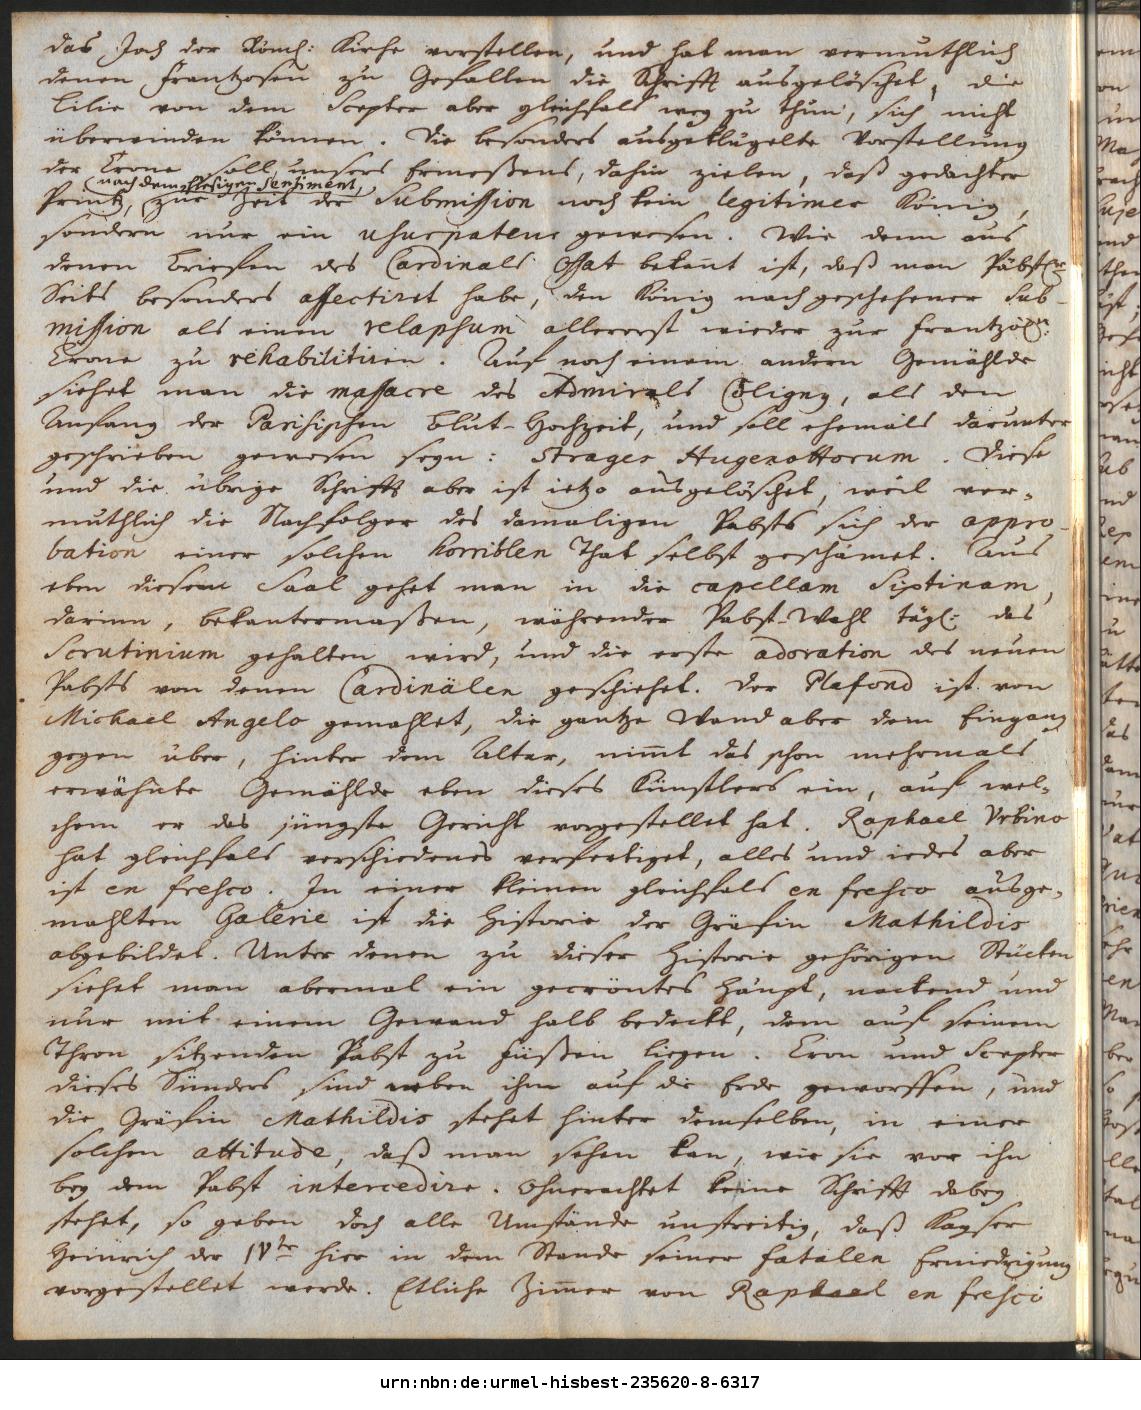 das Joch der Römch: Kirche vorstellen, und hat man vermuthlich
denen Frantzosen zu Gefallen die Schrifft ausgelöschet, die
Lilie von dem Scepter aber gleichfals weg zu thun, sich nicht
überwinden können. Die besonders ausgeklügelte Vorstellung
der Crone soll unsers Ermeßens, dahin zielen, daß gedachter
(nach dem hiesigen Sentiment,)
Printz, zur Zeit der Submission noch kein legitimer König,
sondern nur ein usurpateur gewesen. Wie denn aus
denen Briefen des Cardinals Ossat bekant ist, daß man Päbstl:
Seits besonders affectiret habe, den König nach geschehener Sub-
mission als einen relapsum allererst wieder zur Frantzön:
Crone zu rehabilitiren. Auf noch einem andern Gemählde
siehet man die massacre des Admirals Coligny, als den
Anfang der Parisischen Blut-Hochzeit, und soll ehemals darunter
geschrieben gewesen seyn: Strages Hugenottorum. Diese
und die übrige Schrifft aber ist ietzo ausgelöschet, weil ver-
muthlich die Nachfolger des damaligen Pabsts sich der appro-
bation einer solchen horriblen That selbst geschämet. Aus
eben diesem Saal gehet man in die capellam Sixtinam,
darinn, bekantermaßen, währender Pabst-Wahl tägl: das
Scrutinium gehalten wird, und die erste adoration des neuen
Pabsts von denen Cardinälen geschiehet. Der Plafond ist von
Michael Angelo gemahlet, die gantze Wand aber dem Eingang
gegen über, hinter dem Altar, nimt das schon mehrmals
erwähnte Gemählde eben dieses Künstlers ein, auf wel-
chem er das jüngste Gericht vorgestellet hat. Raphael Urbino
hat gleichfals verschiedenes verfertiget, alles und iedes aber
ist en fresco. In einer kleinen gleichfals en fresco ausge-
mahlten Galerie ist die Historie der Gräfin Mathildis
abgebildet. Unter denen zu dieser Historie gehörigen Stücken
siehet man abermal ein gecröntes Haupt, nackend und
nur mit einem Gewand halb bedeckt, dem auf seinem
Thron sitzenden Pabst zu Füßen liegen. Cron und Scepter
dieses Sünders sind neben ihm auf die Erde geworffen, und
die Gräfin Mathildis stehet hinter demselben, in einer
solchen attitude, daß man sehen kan, wie sie vor ihn
bey dem Pabst intercedire. Ohnerachtet keine Schrifft dabey
stehet, so geben doch alle Umstände unstreitig, daß Kayser
Heinrich der IVte hier in dem Stande seiner fatalen Erniedrigung
vorgestellet werde. Etliche Zimer von Raphael en fresco
urn:nbn:de:urmel-hisbest-235620-8-6317